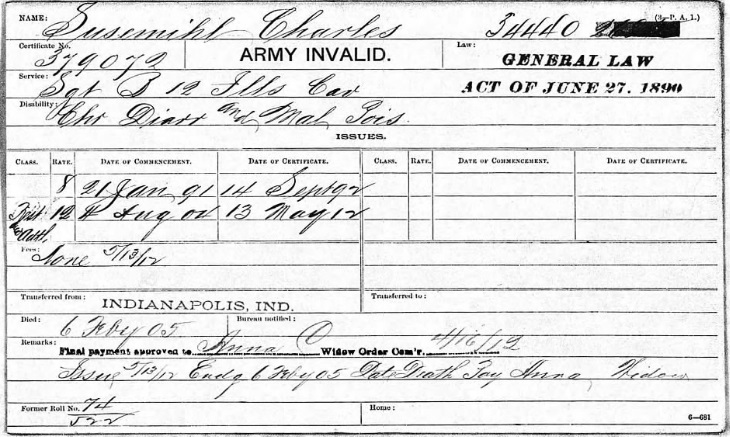 NAME: Susemihl Charles 34440 (3—P. A. 1.)
Certificate No. 379072 ARMY INVALID. Law: GENERAL LAW
Service: Sgt B 12 Ills Cav ACT OF JUNE 27. 1890
Disability: Chr Diarr and Mal Pois.
ISSUES.
CLASS. RATE. DATE OF COMMENCEMENT. DATE OF CERTIFICATE. CLASS. RATE. DATE OF COMMENCEMENT. DATE OF CERTIFICATE.
8 21 Jan 91 14 Sept 92
12 4 Aug 04 13 May 12
Addl.
Fees: None 5/13/12
Transferred from: INDIANAPOLIS, IND. Transferred to:
Died: 6 Feby 05 Bureau notified:
Remarks: Final payment approved to Anna C Widow Order Com'r. 4/16/12
Issue 5/13/12 Endg 6 Feby 05 Date Death Pay Anna, Widow
Former Roll No. 74 Home:
522 6—681